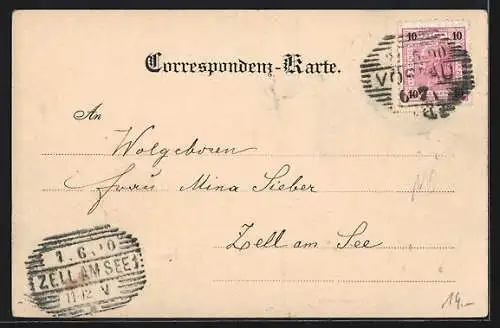 10 10
VÖSLAU
10
Correspondenz-Karte.
An
Wolgeboren
Frau Mina Sieber
Zell am See
1.6.00
ZELL AM SEE 1
11-12 V
14.-